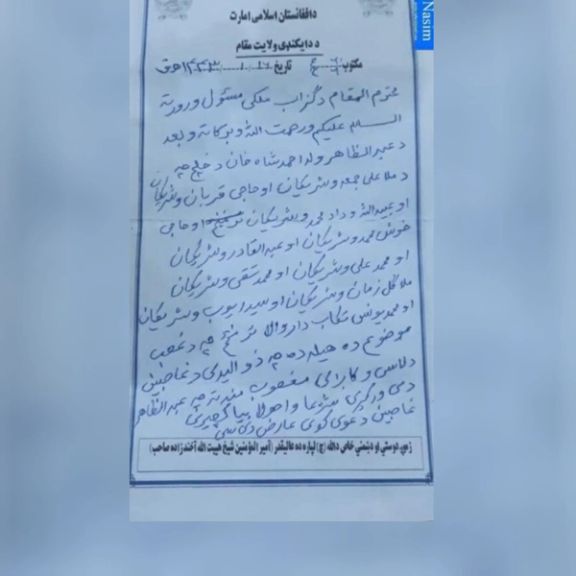 Nasim
دافغانستان اسلامی امارت
د دایکندی ولایت مقام
مکتوب تاریخ ۱۴۴۳ هـ ق
محترم المقام د گزاب ملکی مسئول ورور ته
السلام علیکم ورحمت الله وبرکاته و بعد
د عبدالظاهر ولد احمدشاه خان د خلج چه
د ملا علی جمعه وشریکان او حاجی قربان وشریکان
او عبیدالله و داد محمد وشریکان او حاجی
خوش محمد وشریکان او عبدالقادر وشریکان
او محمد علی وشریکان او محمد تقی وشریکان
ملا گل زمان وشریکان او سید ایوب وشریکان
او محمد یونس تر منځ چه د غصب
موضوع ده هیله ده چه ذوالیدی د غاصبینو
د لاس د مغصوب چه عبدالظاهر
دمی ورکړی او بیا که چیری
غاصبین دعوی کوی عارض دی سی
زموږ دوستي او دښمني خاص دالله (ج) لپاره ده عالیقدر (امیر المؤمنین شیخ هیبت الله آخندزاده صاحب)